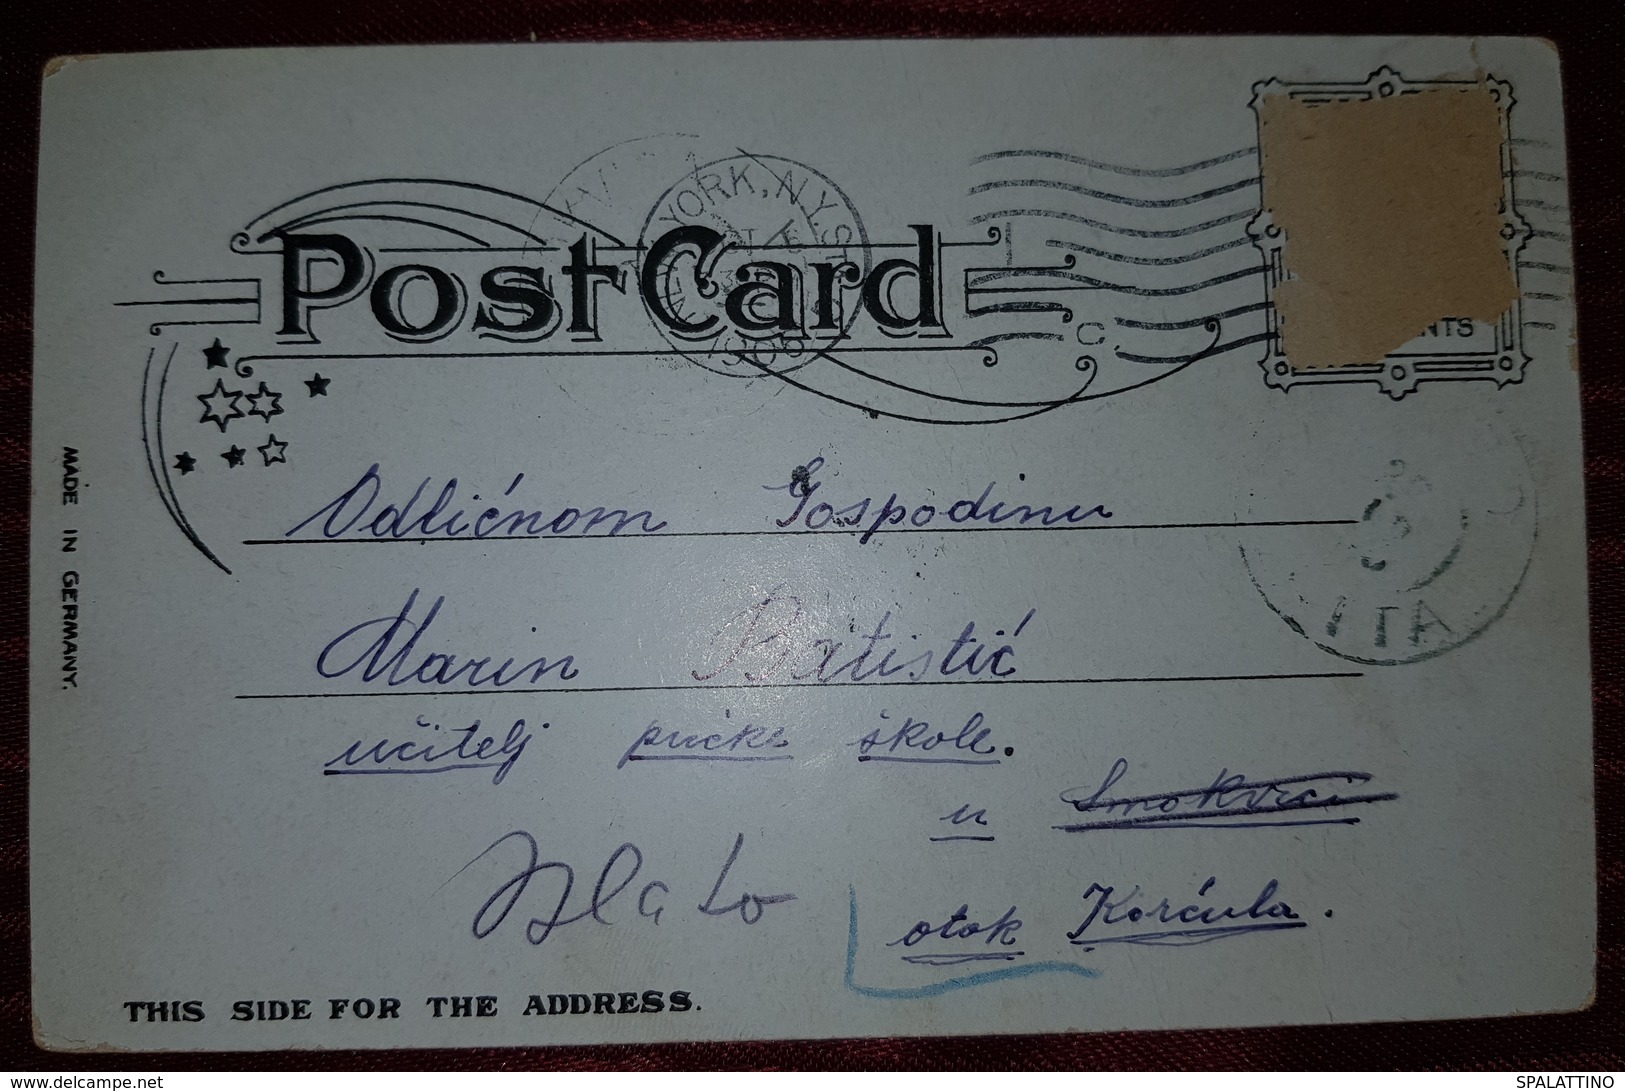 YORK, N.Y. STA
1906
Post Card
C.
NTS
MADE IN GERMANY.
Odličnom Gospodinu
Marin Batistić
učitelj pučke škole.
u Smokvici
Blato
otok Korčula.
ITA
THIS SIDE FOR THE ADDRESS.
www.delcampe.net
SPALATTINO